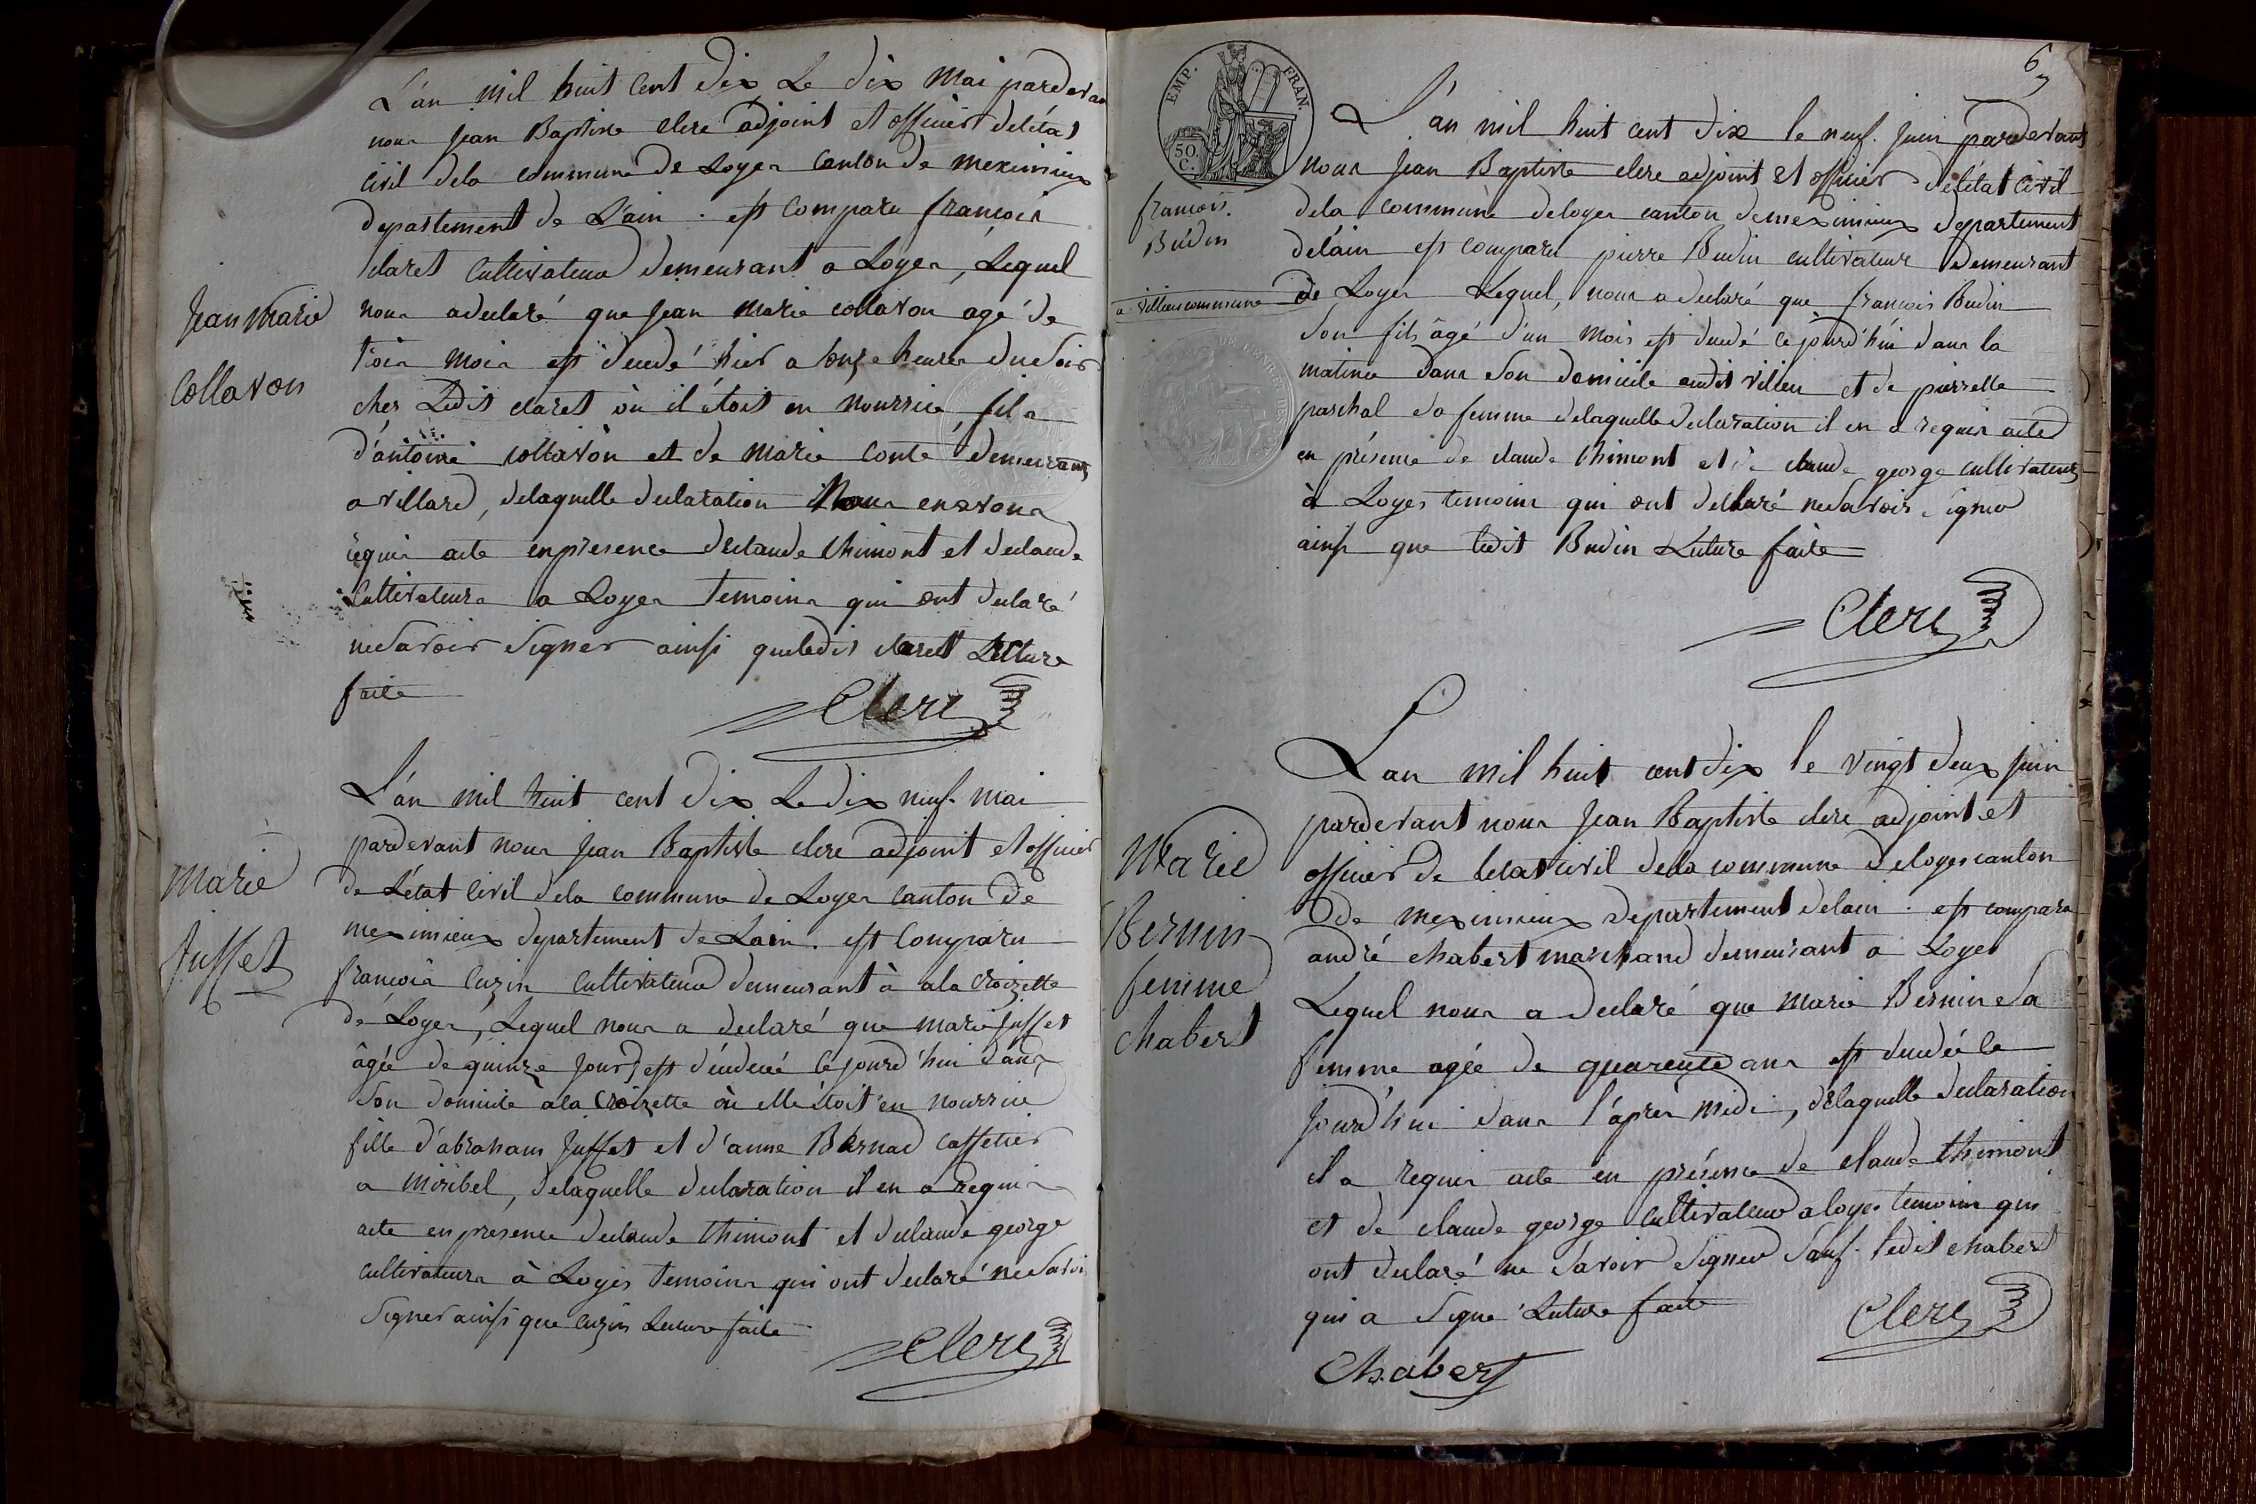 L'an mil huit cent dix Le dix Mai pardevan
nous Jean Baptiste clerc adjoint et officier deletat
civil dela commune de Loyes canton de meximieux
departement de L'ain . est comparu françois
claret cultivateur demeurant a Loyes, Lequel
nous adeclaré que Jean Marie collavon agé de
trois mois est decedé hier a onze heures dusoir
ches Ledit claret où il étoit en nourrice fils
d'antoine collavon et de marie conte demeurant
a villard, delaquelle declaration Nous enavons
requis acte enpresence declaude thimont et declaude
cultivateurs a Loyes temoins qui ont declaré
nesavoir signer ainsi queledit claret Lecture
faite
Clerc
Jean Marie
Collavon
L'an mil huit cent dix Le dix neuf mai
pardevant nous Jean Baptiste clerc adjoint et officier
de L'état civil dela commune de Loyes canton de
meximieux departement de Lain . est comparu
françois cuzin cultivateur demeurant à ala croizette
de Loyes, Lequel nous a declaré que marie juffet
âgée de quinze jours est décedée cejourd'hui dans
son domicile ala croizette où elle étoit en nourrice
fille d'abraham Juffet et d'anne Bernad caffetier
a miribel, delaquelle declaration il en a requis
acte en presence declaude thimont et declaude george
cultivateurs à Loyes temoins qui ont declaré nesavoir
signer ainsi que cuzin Lecture faite
Clerc
marie
Juffet
6
EMP. FRAN.
50 C.
L'an mil huit cent dix le neuf juin pardevant
nous Jean Baptiste clerc adjoint et officier delétat civil
dela commune deloyes canton demeximieux departement
delain est comparu pierre Budin cultivateur demeurant
a villieu commune de Loyes Lequel, nous a declaré que françois Budin
son fils âgé d'un mois est decedé cejourd'hui dans la
matinée dans son domicile audit villieu et de pierrette
paschal sa femme delaquelle declaration il en a requis acte
en présence de claude thimont et de claude george cultivateurs
à Loyes temoins qui ont declaré nesavoir signer
ainsi que ledit Budin Lecture faite
Clerc
françois
Budin
L'an mil huit cent dix le vingt deux juin
pardevant nous Jean Baptiste clerc adjoint et
officier de letat civil dela commune deloyes canton
de meximieux departement delain . est comparu
andré chabert marchand demeurant a Loyes
Lequel nous a declaré que marie Bernin sa
femme agée de quarente ans est decedée ce
jourd'hui dans l'après midi, delaquelle declaration
il a requis acte en présence de claude thimont
et de claude george cultivateurs a loyes temoins qui
ont declaré ne savoir signer sauf ledit chabert
qui a signé Lecture faite
Clerc
Chabert
Marie
Bernin
femme
chabert